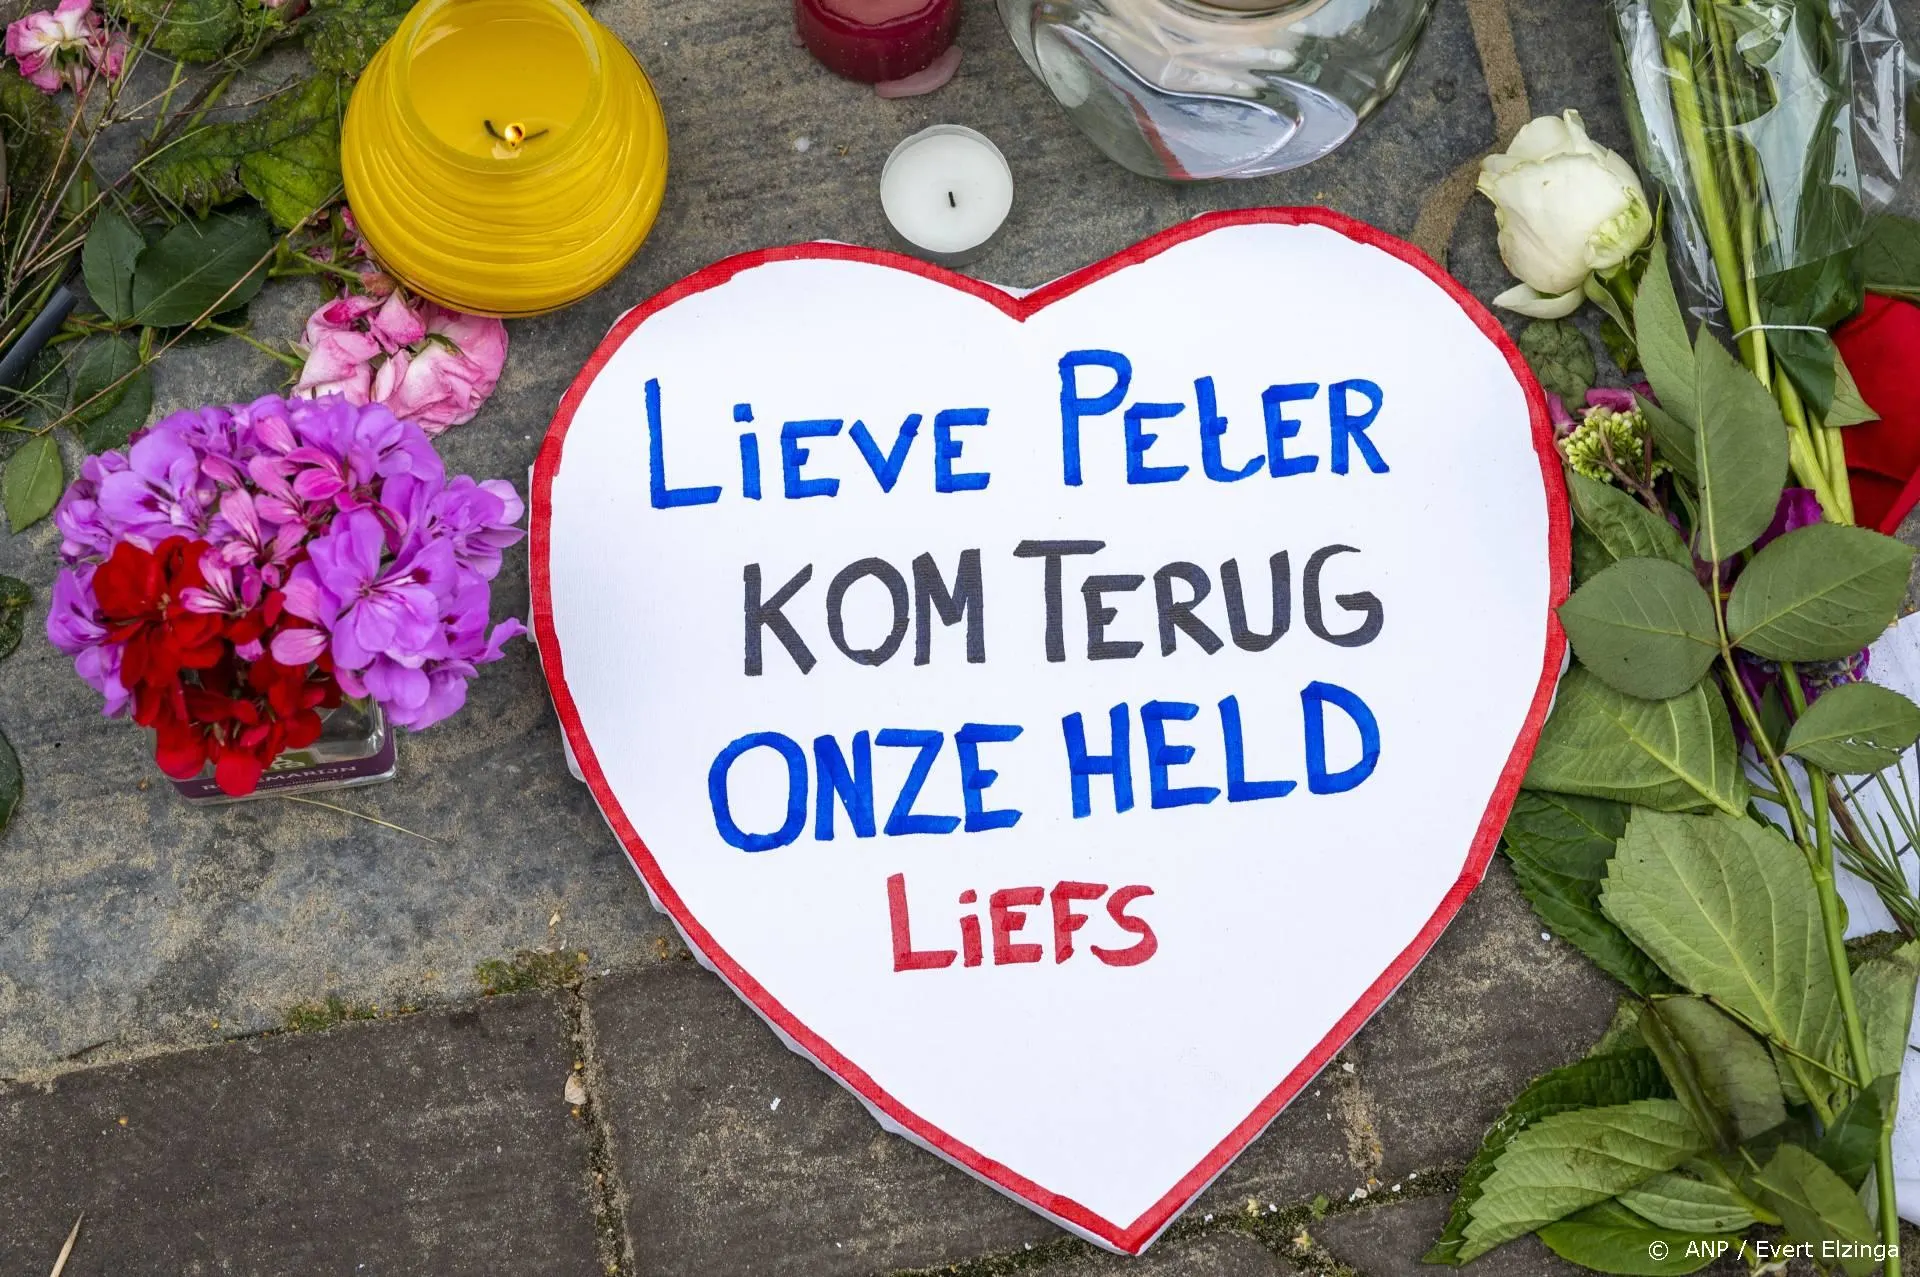 LiEVE PETER
KOM TERUG
ONZE HELD
LiEFS
MARIJN
© ANP / Evert Elzinga